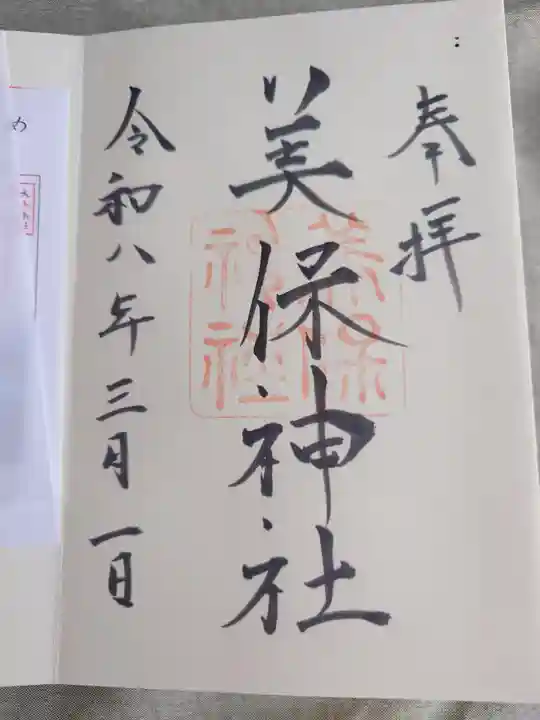 奉拝
美保神社
美保
神社
令和八年三月一日
め